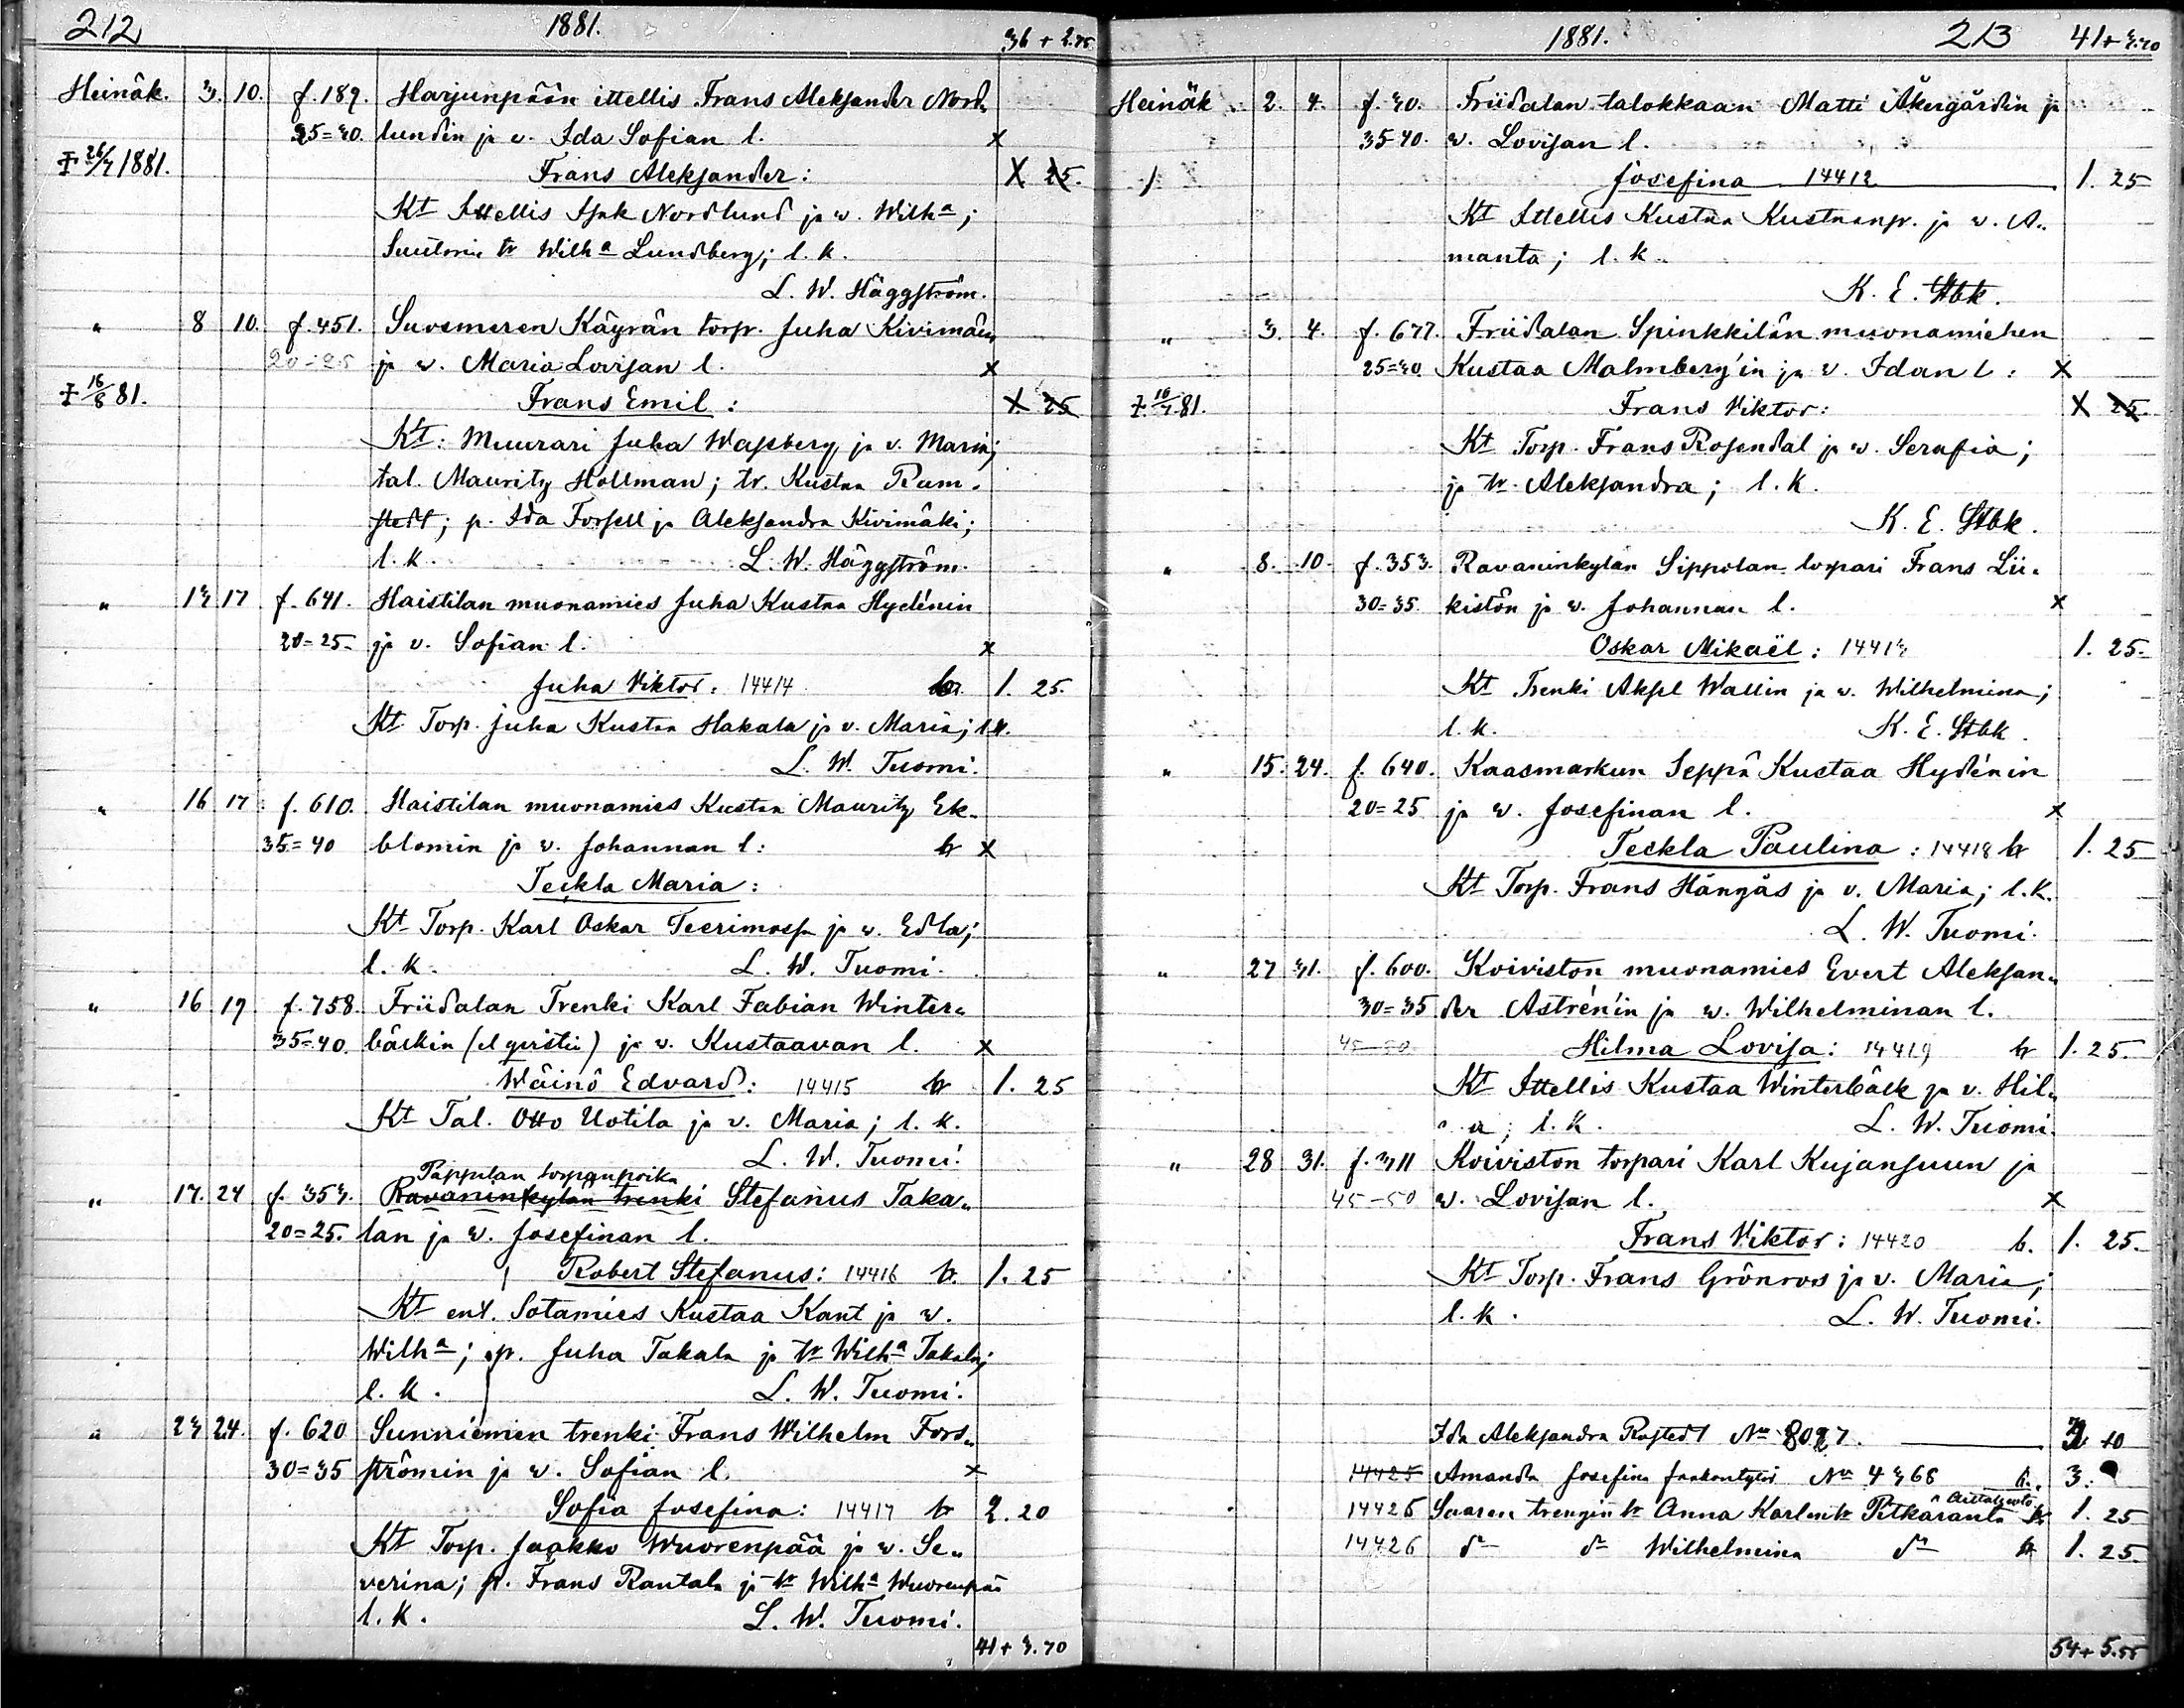 212 1881. 36 + 2.95
Heinäk. 3. 10. f. 189. Harjunpään ittellis Frans Aleksander Nord„
35=40. lundin ja v. Ida Sofian l. x
‡ 26/7 1881. Frans Aleksander: X 25.
Kt Ittellis Isak Nordlund ja v. Wilha;
Suutorin tr Wilha Lundberg; l. k.
L. W. Häggström.
„ 8 10. f. 451. Suosmeren Käyrän torp. Juha Kivimäen
20-25 ja v. Maria Lovisan l. x
‡ 16/8 81. Frans Emil: 1. 25
Kt: Muurari Juha Wassberg ja v. Maria;
tal. Mauritz Hollman; tr. Kustaa Ram„
stedt; p. Ida Forsell ja Aleksandra Kivimäki;
l. k. L. W. Häggström.
„ 13 17 f. 641. Haistilan muonamies Juha Kustaa Hydénin
20=25 ja v. Sofian l. x
Juha Viktor: 14414 1. 25.
Kt Torp. Juha Kustaa Hakala ja v. Maria; l.k.
L. W. Tuomi.
„ 16 17 f. 610. Haistilan muonamies Kustaa Mauritz Ek„
35=40 blomin ja v. Johannan l: tr x
Teckla Maria:
Kt Torp. Karl Oskar Teerimossa ja v. Edla;
l. k. L. W. Tuomi.
„ 16 17 f. 758. Friidalan Trenki Karl Fabian Winter„
35=40. bäckin (el girstii) ja v. Kustaavan l. x
Wäinö Edvard: 14415 tr 1. 25
Kt Tal. Otto Uotila ja v. Maria; l. k.
L. W. Tuomi.
Pappilan torpanpoika
„ 17. 24 f. 353. Ravaninkylän trenki Stefanus Taka„
20=25. lan ja v. Josefinan l.
Robert Stefanus: 14416 tr. 1. 25
Kt ent. Sotamies Kustaa Kant ja v.
Wilha; p. Juha Takala ja tr Wilha Takala;
l. k. L. W. Tuomi.
„ 23 24. f. 620 Sunniemen trenki Frans Wilhelm Fors„
30=35 strömin ja v. Sofian l. x
Sofia Josefina: 14417 tr 2. 20
Kt Torp. Jaakko Wuorenpää ja v. Se„
verina; p. Frans Rantala ja tr Wilha Wuorenpää
l. k. L. W. Tuomi.
41 + 3.70
1881. 213 41 + 3.70
Heinäk 2. 4. f. 40. Friidalan talokkaan Matti Åkergårdin ja
35-40. v. Lovisan l.
Josefina 14412 1. 25
Kt Ittellis Kustaa Kustaanp. ja v. A„
manta; l. k.
K. E. Stbk.
„ 3. 4. f. 677. Friidalan Spinkkilän muonamiehen
25=30 Kustaa Malmberg'in ja v. Idan l: x
‡ 10/7 81. Frans Viktor: X 25.
Kt Torp. Frans Rosendal ja v. Serafia;
ja tr. Aleksandra; l. k.
K. E. Stbk.
„ 8. 10. f. 353. Ravaninkylän Sippolan torpari Frans Lii„
30=35. kistön ja v. Johannan l. x
Oskar Mikaël: 14413 1. 25.
Kt Trenki Aksel Wallin ja v. Wilhelmina;
l. k. K. E. Stbk.
„ 15. 24. f. 640. Kaasmarkun Seppä Kustaa Hydénin
20=25 ja v. Josefinan l. x
Teckla Paulina: 14418 tr 1. 25
Kt Torp. Frans Hångås ja v. Maria; l. k.
L. W. Tuomi.
„ 27 31. f. 600. Koiviston muonamies Evert Aleksan„
30=35 der Astrén'in ja v. Wilhelminan l.
45-50 Hilma Lovisa: 14419 tr 1. 25.
Kt Ittellis Kustaa Winterbäck ja v. Hil„
a; l. k. L. W. Tuomi.
„ 28 31. f. 311 Koiviston torpari Karl Kujansuun ja
45-50 v. Lovisan l. x
Frans Viktor: 14420 1. 25.
Kt Torp. Frans Grönroos ja v. Maria;
l. k. L. W. Tuomi.
Ida Aleksandra Rostedt No 8027. 10
14425 Amanda Josefina No 4368 3.
14426 Saaren trengin tr Anna Karlentr Pitkäranta tr 1. 25
14426 do do Wilhelmina do tr 1. 25.
54 + 5.55